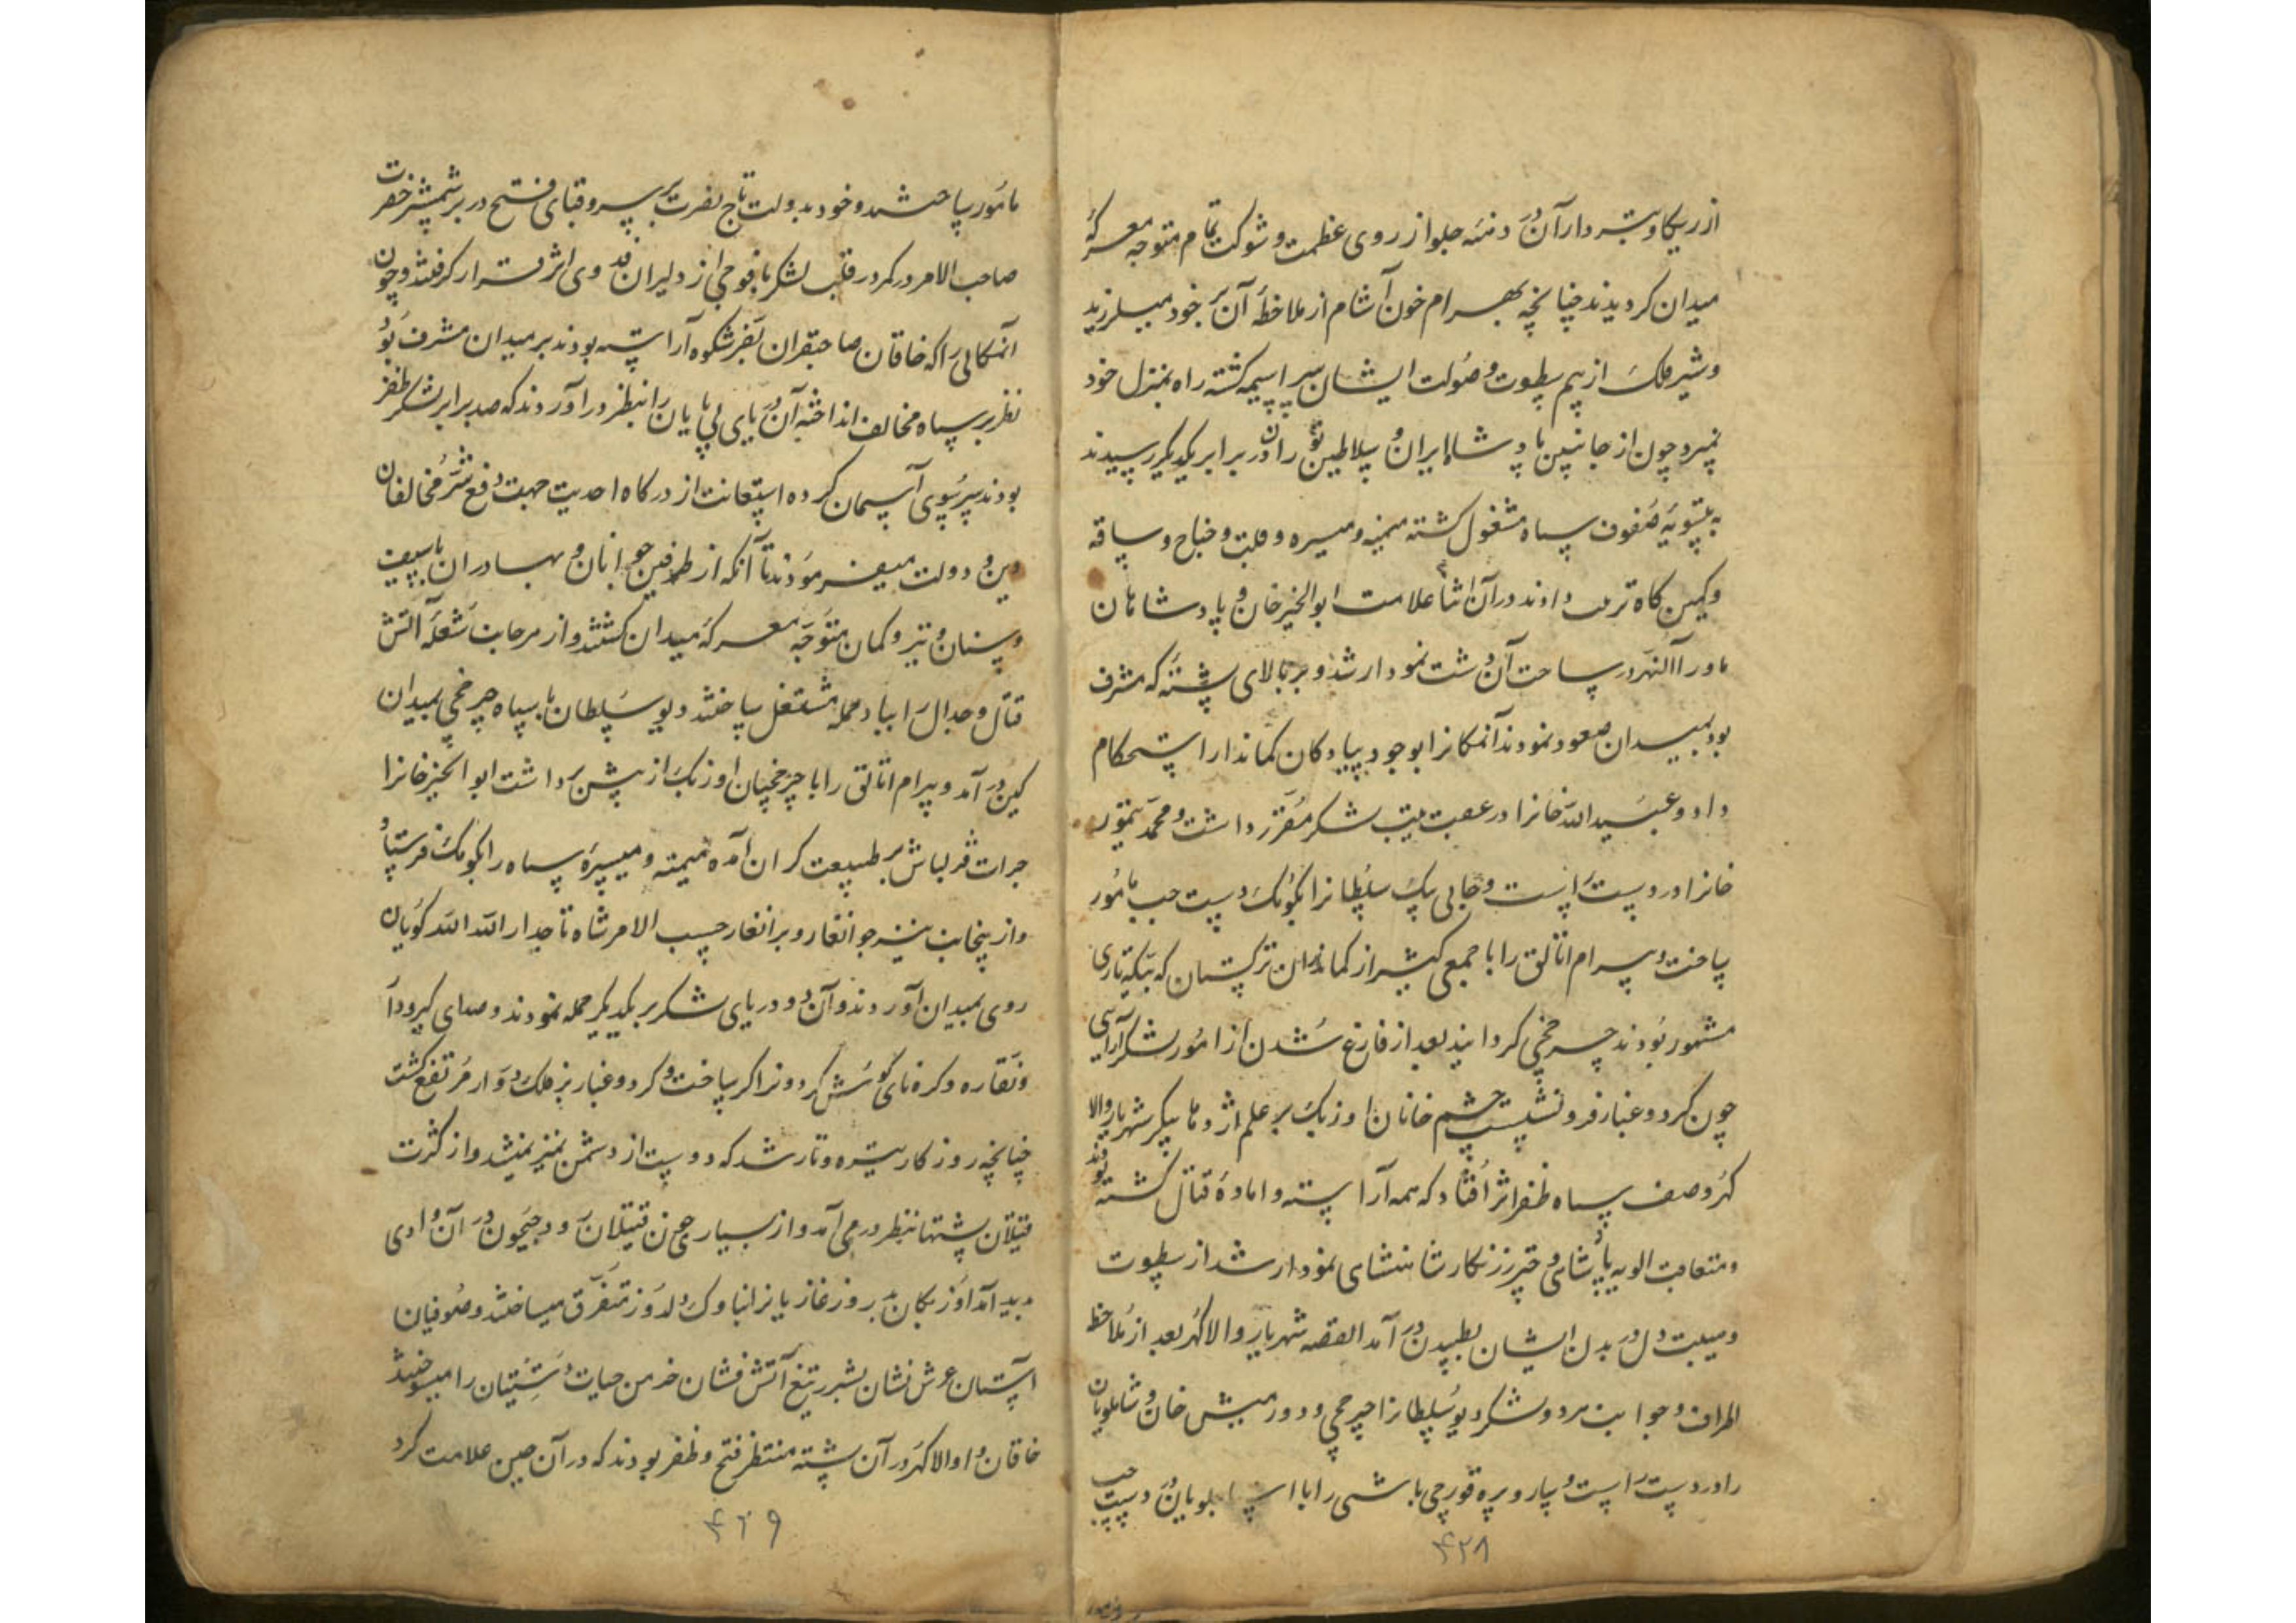 از ریکا و تبردار آن در دنیه جلو از روی عظمت و شوکت تمام متوجه معرکهٔ
میدان کردیدند چنانچه بهرام خون آشام از ملاحظهٔ آن بر خود میلرزید
و شیر فلک از بیم سطوت و صولت ایشان سراسیمه کشته راه بمنزل خود
نمیبرد چون از جانبین پادشاه ایران و سلاطین توران در برابر یکدیکر رسیدند
به تسویهٔ صفوف سپاه مشغول کشته میمنه و میسره و قلب و جناح و ساقه
و کمین کاه ترتیب دادند در آن اثنا علامت ابوالخیر خان و پادشاهان
ماورآالنهر در ساحت آن دشت نمودار شد و بر بالای پشتهٔ که مشرف
بود بمیدان صعود نمودند آنمکانرا بوجود پیادکان کماندار استحکام
داد و عبیدالله خانرا در عقب لشکر مقرر داشت و محمد تیمور
خانرا در دست راست و جانی بیک سلطانرا بکومک دست چپ مامور
ساخت و بیرام اتالق را با جمعی کثیر از کمانداران ترکستان که بیکه تازی
مشهور بودند چرخچی کردانید بعد از فارغ شدن از امور لشکرآرایی
چون کرد و غبار فرو نشست چشم خانان اوزبک بر علم اژدها پیکر شهریار والا
کهر و صف سپاه ظفر اثر افتاد که همه آراسته و امادهٔ قتال کشته بودند
و متعاقب الویه پادشاهی و چتر زرنکار شاهنشاهی نمودار شد از سطوت
و هیبت دل در بدن ایشان بطپیدن در آمد القصه شهریار والاکهر بعد از ملاحظه
اطراف و جوانب هر دو لشکر دیو سلطانرا چرخچی و دورمیش خان و شاملویان
را در دست راست و ساروپیره قورچی باشی را با استاجلویان در دست چپ
۴۲۸
مامور ساخته و خود بدولت تاج نصرت بر سر و قبای فتح در بر شمشیر حضرت
صاحب الامر در کمر در قلب لشکر با فوجی از دلیران فدوی اثر قرار کرفتند و چون
آنمکانی را که خاقان صاحبقران بفر شکوه آراسته بودند بر میدان مشرف بود
نظر بر سپاه مخالف انداخته آن دریای بی پایان را بنظر در آوردند که صد برابر لشکر ظفر
بودند سر بسوی آسمان کرده استعانت از درکاه احدیت جهت دفع شر مخالفان
دین و دولت میفرمودند تا آنکه از طرفین جوانان و بهادران با سیف
و سنان و تیر و کمان متوجه معرکهٔ میدان کشتند و از هر جانب شعلهٔ آتش
قتال و جدال را بباد حمله مشتعل ساختند دیو سلطان با سپاه چرخچی بمیدان
کین در آمد و بیرام اتالق را با چرخچیان اوزبک از پیش برداشت ابوالخیر خانرا
جرات قزلباش بر طبیعت کران آمده میمنه و میسره سپاه را بکومک فرستاد
و از ینجانب نیز جوانغار و برانغار حسب الامر شاه تاجدار الله الله کویان
روی بمیدان آوردند و آن دو دریای لشکر بر یکدیکر حمله نمودند و صدای کیر و دار
و نقاره و کره نای کوش کردونرا کر ساخت و کرد و غبار بر فلک دوار مرتفع کشت
چنانچه روزکار تیره و تار شد که دوست از دشمن تمیز نمیشد و از کثرت
قتیلان پشتها بنظر در می آمد و از بسیاری خون قتیلان رود جیحون در آن وادی
پدید آمد اوزبکان بد روز غازیانرا بناوک دلدوز متفرق میساختند و صوفیان
آستان عرش نشان بشرر تیغ آتش فشان خرمن حیات دشتیان را میسوختند
خاقان والاکهر در آن پشته منتظر فتح و ظفر بودند که در آن حین علامت کرد
۴۲۹